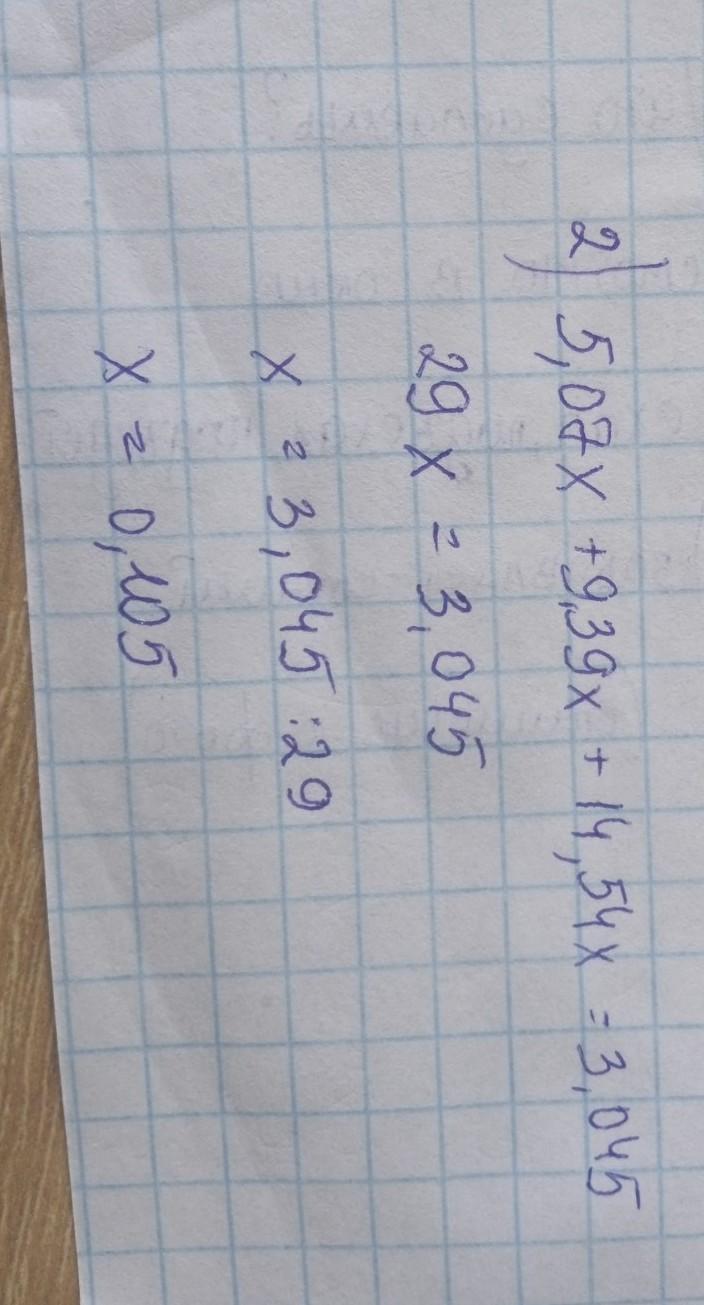 2) 5,07x + 9,39x + 14,54x = 3,045
29x = 3,045
x = 3,045 : 29
x = 0,105